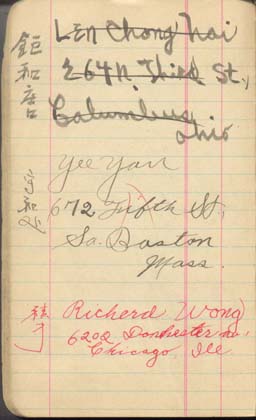 鉅和店
Len Chong hai
264 N Third St,
Columbus
Ohio
Yee Yan
672 Fifth St,
So. Boston
Mass.
Richerd Wong
6202 Dorchester Av,
Chicago, Ill